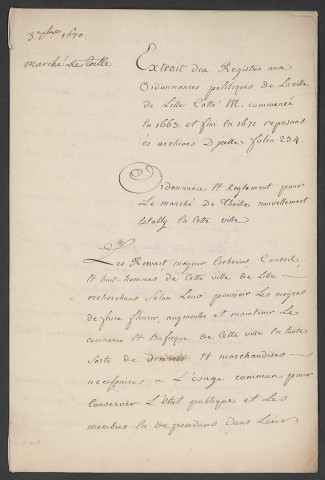 3 7bre 1670
Marché de toille
Extrait des Registres aux
Ordonnances politiques de la ville
de Lille Cotté M. commencé
en 1665 et fini en 1671 reposans
és archives d'jcelle folio 234.
Ordonnance Et Reglement pour
Le marché de Thoille nouvellement
Estably En Cette ville
Les Rewart mayeur Eschevins Conseil
Et huit-hommes de Cette ville de Lille
recherchans Selon Leur pouvoir Les moyens
de faire fleurir, augmenter et maintenir Le
commerce Et trafique de Cette ville En toute
Sorte de Et marchandises
necessaires a L'usage commun pour
Conserver L'état publique et Les
membres En dependans dans Leur